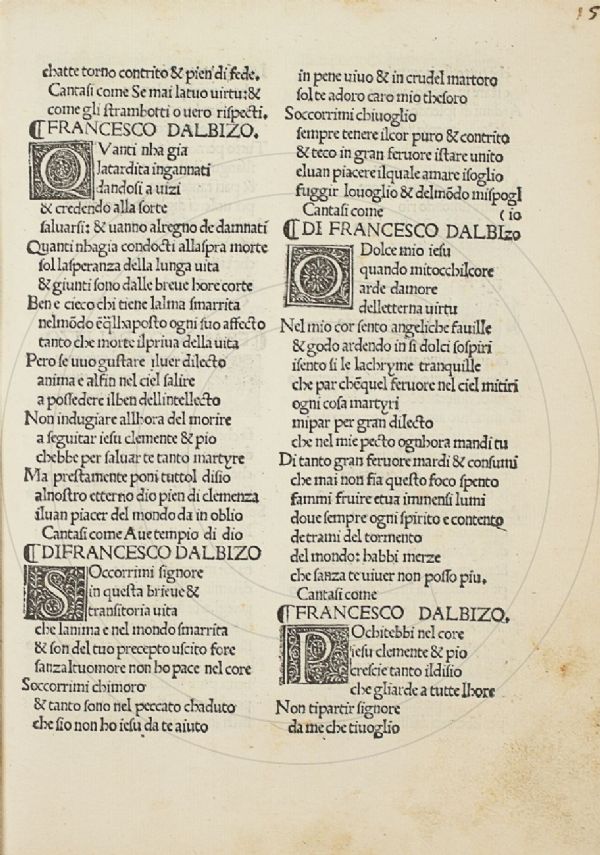 15
chatte torno contrito & pien di fede.
Cantasi come Se mai la tuo uirtu: &
come gli strambotti o uero rispecti.
❡FRANCESCO DALBIZO.
QVanti nha gia
latardita ingannati
dandosi a uizi
& credendo alla sorte
saluarsi: & uanno alregno de damnati
Quanti nhagia condocti allaspra morte
sol lasperanza della lunga uita
& giunti sono dalle breue hore corte
Ben e cieco chi tiene lalma smarrita
nelmōdo
tanto che morte ilpriua della uita
Pero se uuo gustare iluer dilecto
anima e alfin nel ciel salire
a possedere ilben dellintellecto
Non indugiare allhora del morire
a seguitar iesu clemente & pio
chebbe per saluar te tanto martyre
Ma prestamente poni tuttol disio
alnostro etterno dio pien di clemenza
iluan piacer del mondo da in oblio
Cantasi come Aue tempio di dio
❡DIFRANCESCO DALBIZO
SOccorrimi signore
in questa brieue &
transitoria uita
che lanima e nel mondo smarrita
& son del tuo precepto uscito fore
sanzaltuomore non ho pace nel core
Soccorrimi chimoro
& tanto sono nel peccato chaduto
che sio non ho iesu da te aiuto
in pene uiuo & in crudel martoro
sol te adoro caro mio thesoro
Soccorrimi chiuoglio
sempre tenere ilcor puro & contrito
& teco in gran feruore istare unito
eluan piacere ilquale amare isoglio
fuggir louoglio & delmōdo mispogl
Cantasi come ( io
❡DI FRANCESCO DALBIzo
ODolce mio iesu
quando mitocchilcore
arde damore
delletterna uirtu
Nel mio cor sento angeliche fauille
& godo ardendo in si dolci sospiri
isento si le lachryme tranquille
che par chēquel feruore nel ciel mitiri
ogni cosa martyri
mi par per gran dilecto
che nel mie pecto ognhora mandi tu
Di tanto gran feruore mardi & consumi
che mai non fia questo foco spento
fammi fruire etua immensi lumi
doue sempre ogni spirito e contento
detrami del tormento
del mondo: habbi merze
che sanza te uiuer non posso piu.
Cantasi come
❡FRANCESCO DALBIZO.
POchitebbi nel core
iesu clemente & pio
crescie tanto ildisio
che gliarde a tutte lhore
Non tipartir signore
da me che tiuoglio